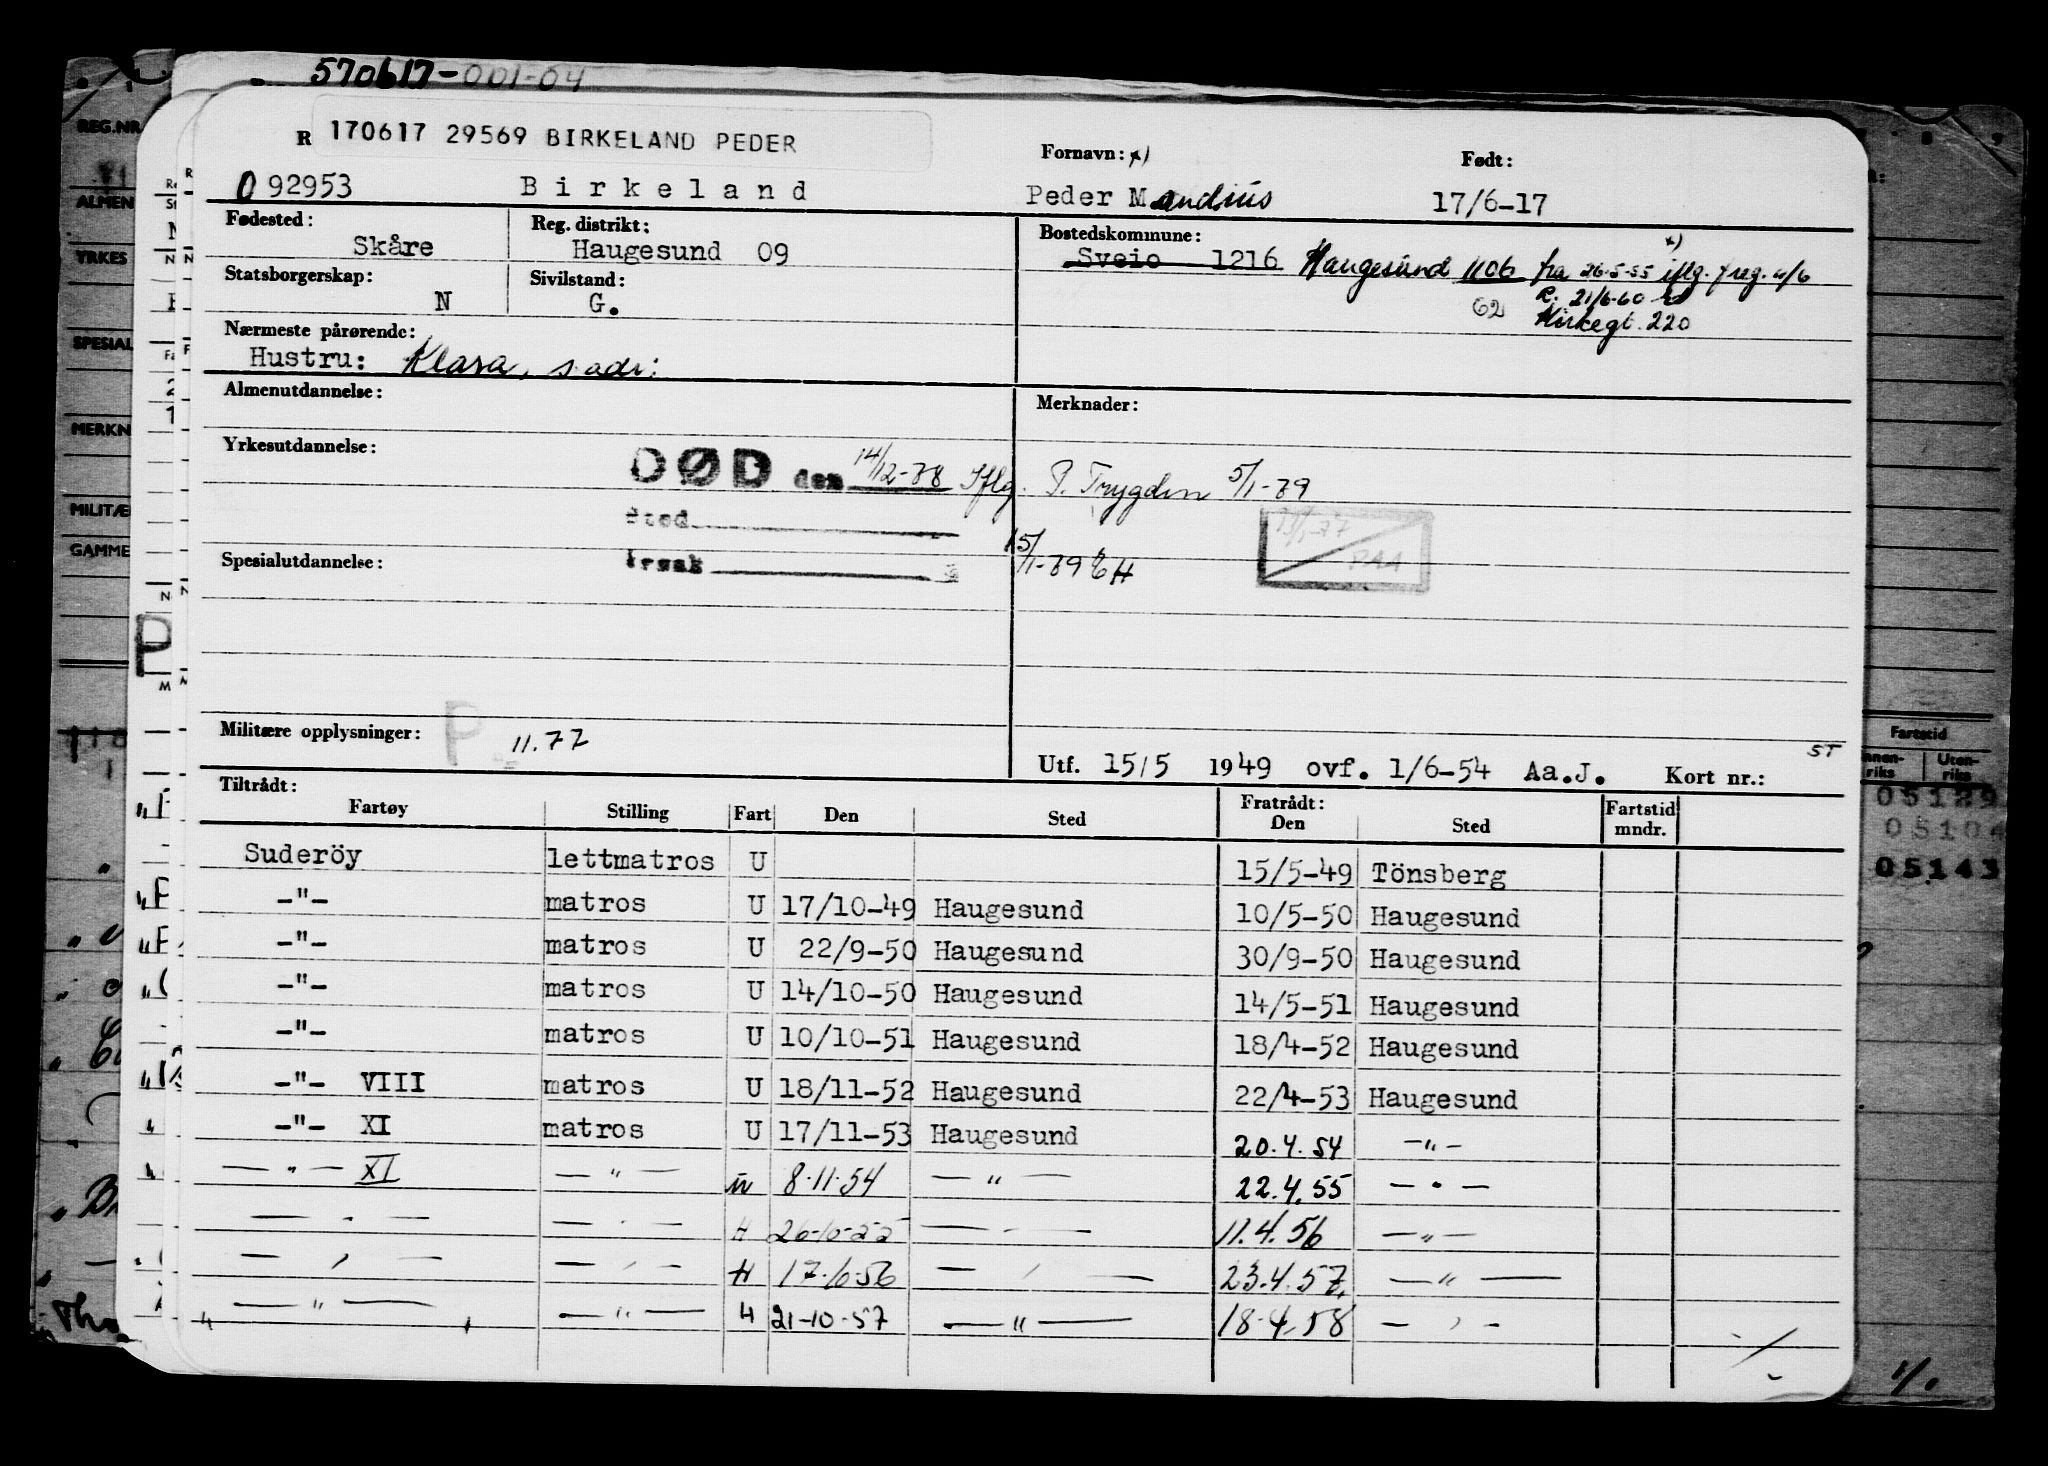 570617-001-04
R 170617 29569 BIRKELAND PEDER
Fornavn: x) Født:
092953 Birkeland Peder Mandius 17/6-17
Fødested: Reg. distrikt: Bostedskommune:
Skåre Haugesund 09 Sveio 1216 Haugesund 1106 fra 26-5-55 iflg. freg. 4/6
x)
Statsborgerskap: Sivilstand:
N G.
62 R. 21/6-60
Kirkegt. 220
Nærmeste pårørende:
Hustru: Klara, s adr:
Almenutdannelse: Merknader:
Yrkesutdannelse:
DØD den 14/12-78 Iflg. P. Trygden 5/1-79
Sted
Årsak
15/1-79 EH
PAA
Spesialutdannelse:
P
Militære opplysninger: P 11.77
Utf. 15/5 1949 ovf. 1/6-54 Aa.J. Kort nr.: ST
Tiltrådt: Fratrådt:
Fartøy Stilling Fart Den Sted Den Sted Fartstid mndr.
Suderöy lettmatros U 15/5-49 Tönsberg
-"- matros U 17/10-49 Haugesund 10/5-50 Haugesund
-"- matros U 22/9-50 Haugesund 30/9-50 Haugesund
-"- matros U 14/10-50 Haugesund 14/5-51 Haugesund
-"- matros U 10/10-51 Haugesund 18/4-52 Haugesund
-"- VIII matros U 18/11-52 Haugesund 22/4-53 Haugesund
-"- XI matros U 17/11-53 Haugesund 20.4.54 -"-
-"- XI -"- u 8.11.54 -"- 22.4.55 -"-
-"- -"- H 26-10-55 -"- 11.4.56 -"-
-"- -"- H -"- 23.4.57 -"-
-"- -"- H 21-10-57 -"- 18-4-58 -"-
REG.NR
ALMEN
YRKES
SPESIAL
MERKN
MILITÆ
GAMME
Fartstid
Innen-riks Uten-riks
05129
05104
05143